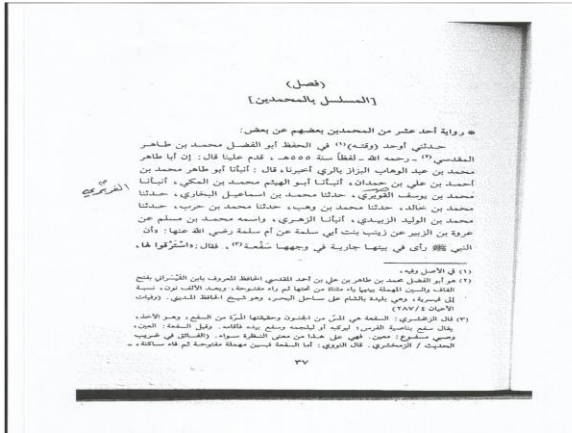 (فصل)
[المسلسل بالمحمدين]
* رواية أحد عشر من المحمدين بعضهم عن بعض:
حدثني أوحد (وقته)(١) في الحفظ أبو الفضل محمد بن طاهر
المقدسي(٢) ـ رحمه الله ـ لفظاً سنة ٥٥٥هـ، قدم علينا قال: إن أبا طاهر
محمد بن عبد الوهاب البزاز بالري أخبرنا، قال: أنبأنا أبو طاهر محمد بن
أحمد بن علي بن حمدان، أنبأنا أبو الهيثم محمد بن المكي، أنبأنا
محمد بن يوسف الفويري، حدثنا محمد بن اسماعيل البخاري، حدثنا
الفربري
محمد بن خالد، حدثنا محمد بن وهب، حدثنا محمد بن حرب، حدثنا
محمد بن الوليد الزبيدي، أنبأنا الزهري، واسمه محمد بن مسلم عن
عروة بن الزبير عن زينب بنت أبي سلمة عن أم سلمة رضي الله عنها: «أن
النبي ﷺ رأى في بيتها جارية في وجهها سَفْعة(٣)، فقال: «اسْتَرْقوا لها،
(١) في الأصل وفيه.
(٢) هو أبو الفضل محمد بن طاهر بن علي بن أحمد المقدسي الحافظ المعروف بابن القَيْسراني بفتح
القاف والسين المهملة بينهما ياء مثناة من تحتها ثم راء مفتوحة، وبعد الألف نون، نسبة
إلى قيسرية، وهي بليدة بالشام على ساحل البحر، وهو شيخ الحافظ المديني. (وفيات
الأعيان ٢٨٧/٤)
(٣) قال الزمخشري: السفعة هي المسّ من الجنون وحقيقتها المرّة من السفع، وهو الأخذ،
يقال سفع بناصية الفرس؛ ليركبه أو ليلجمه وسفع بيده فأقامه. وقيل السفعة: العين،
وصبي مسفوع: معين. فهي على هذا من معنى النظرة سواء. (الفائق في غريب
الحديث / الزمخشري. قال النووي: أما السفعة فبسين مهملة مفتوحة ثم فاء ساكنة، ـ
٣٧